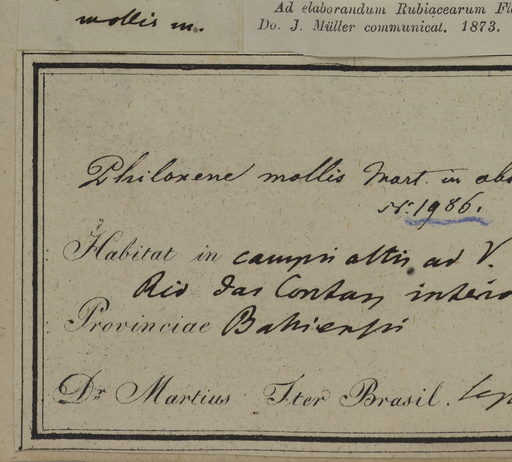 mollis m.
Ad elaborandum Rubiacearum Fl
Do. J. Müller communicat. 1873.
Philoxene mollis Mart. in obs
N. 1986.
Habitat in campis altis ad V.
Rio das Contas, interio
Provinciae Bahiensis
Dr. Martius Iter Brasil. Sep